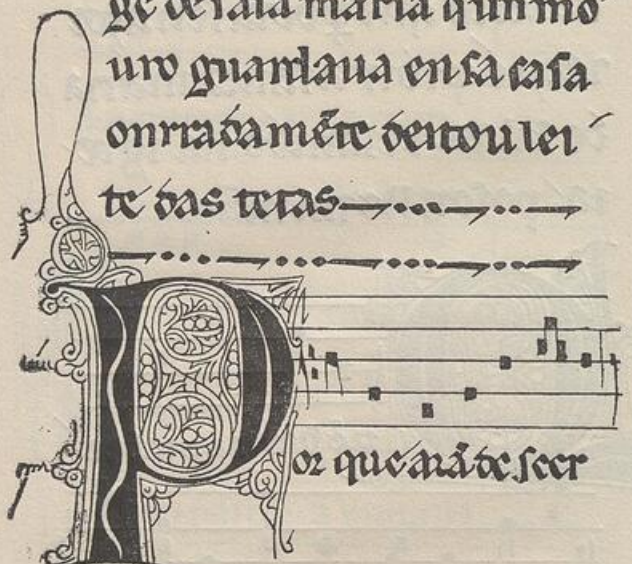 ge de sãta maria q un mo
uro guardaua en sa casa
onrradamẽte deitou lei
te das tetas
Por que aiã de seer